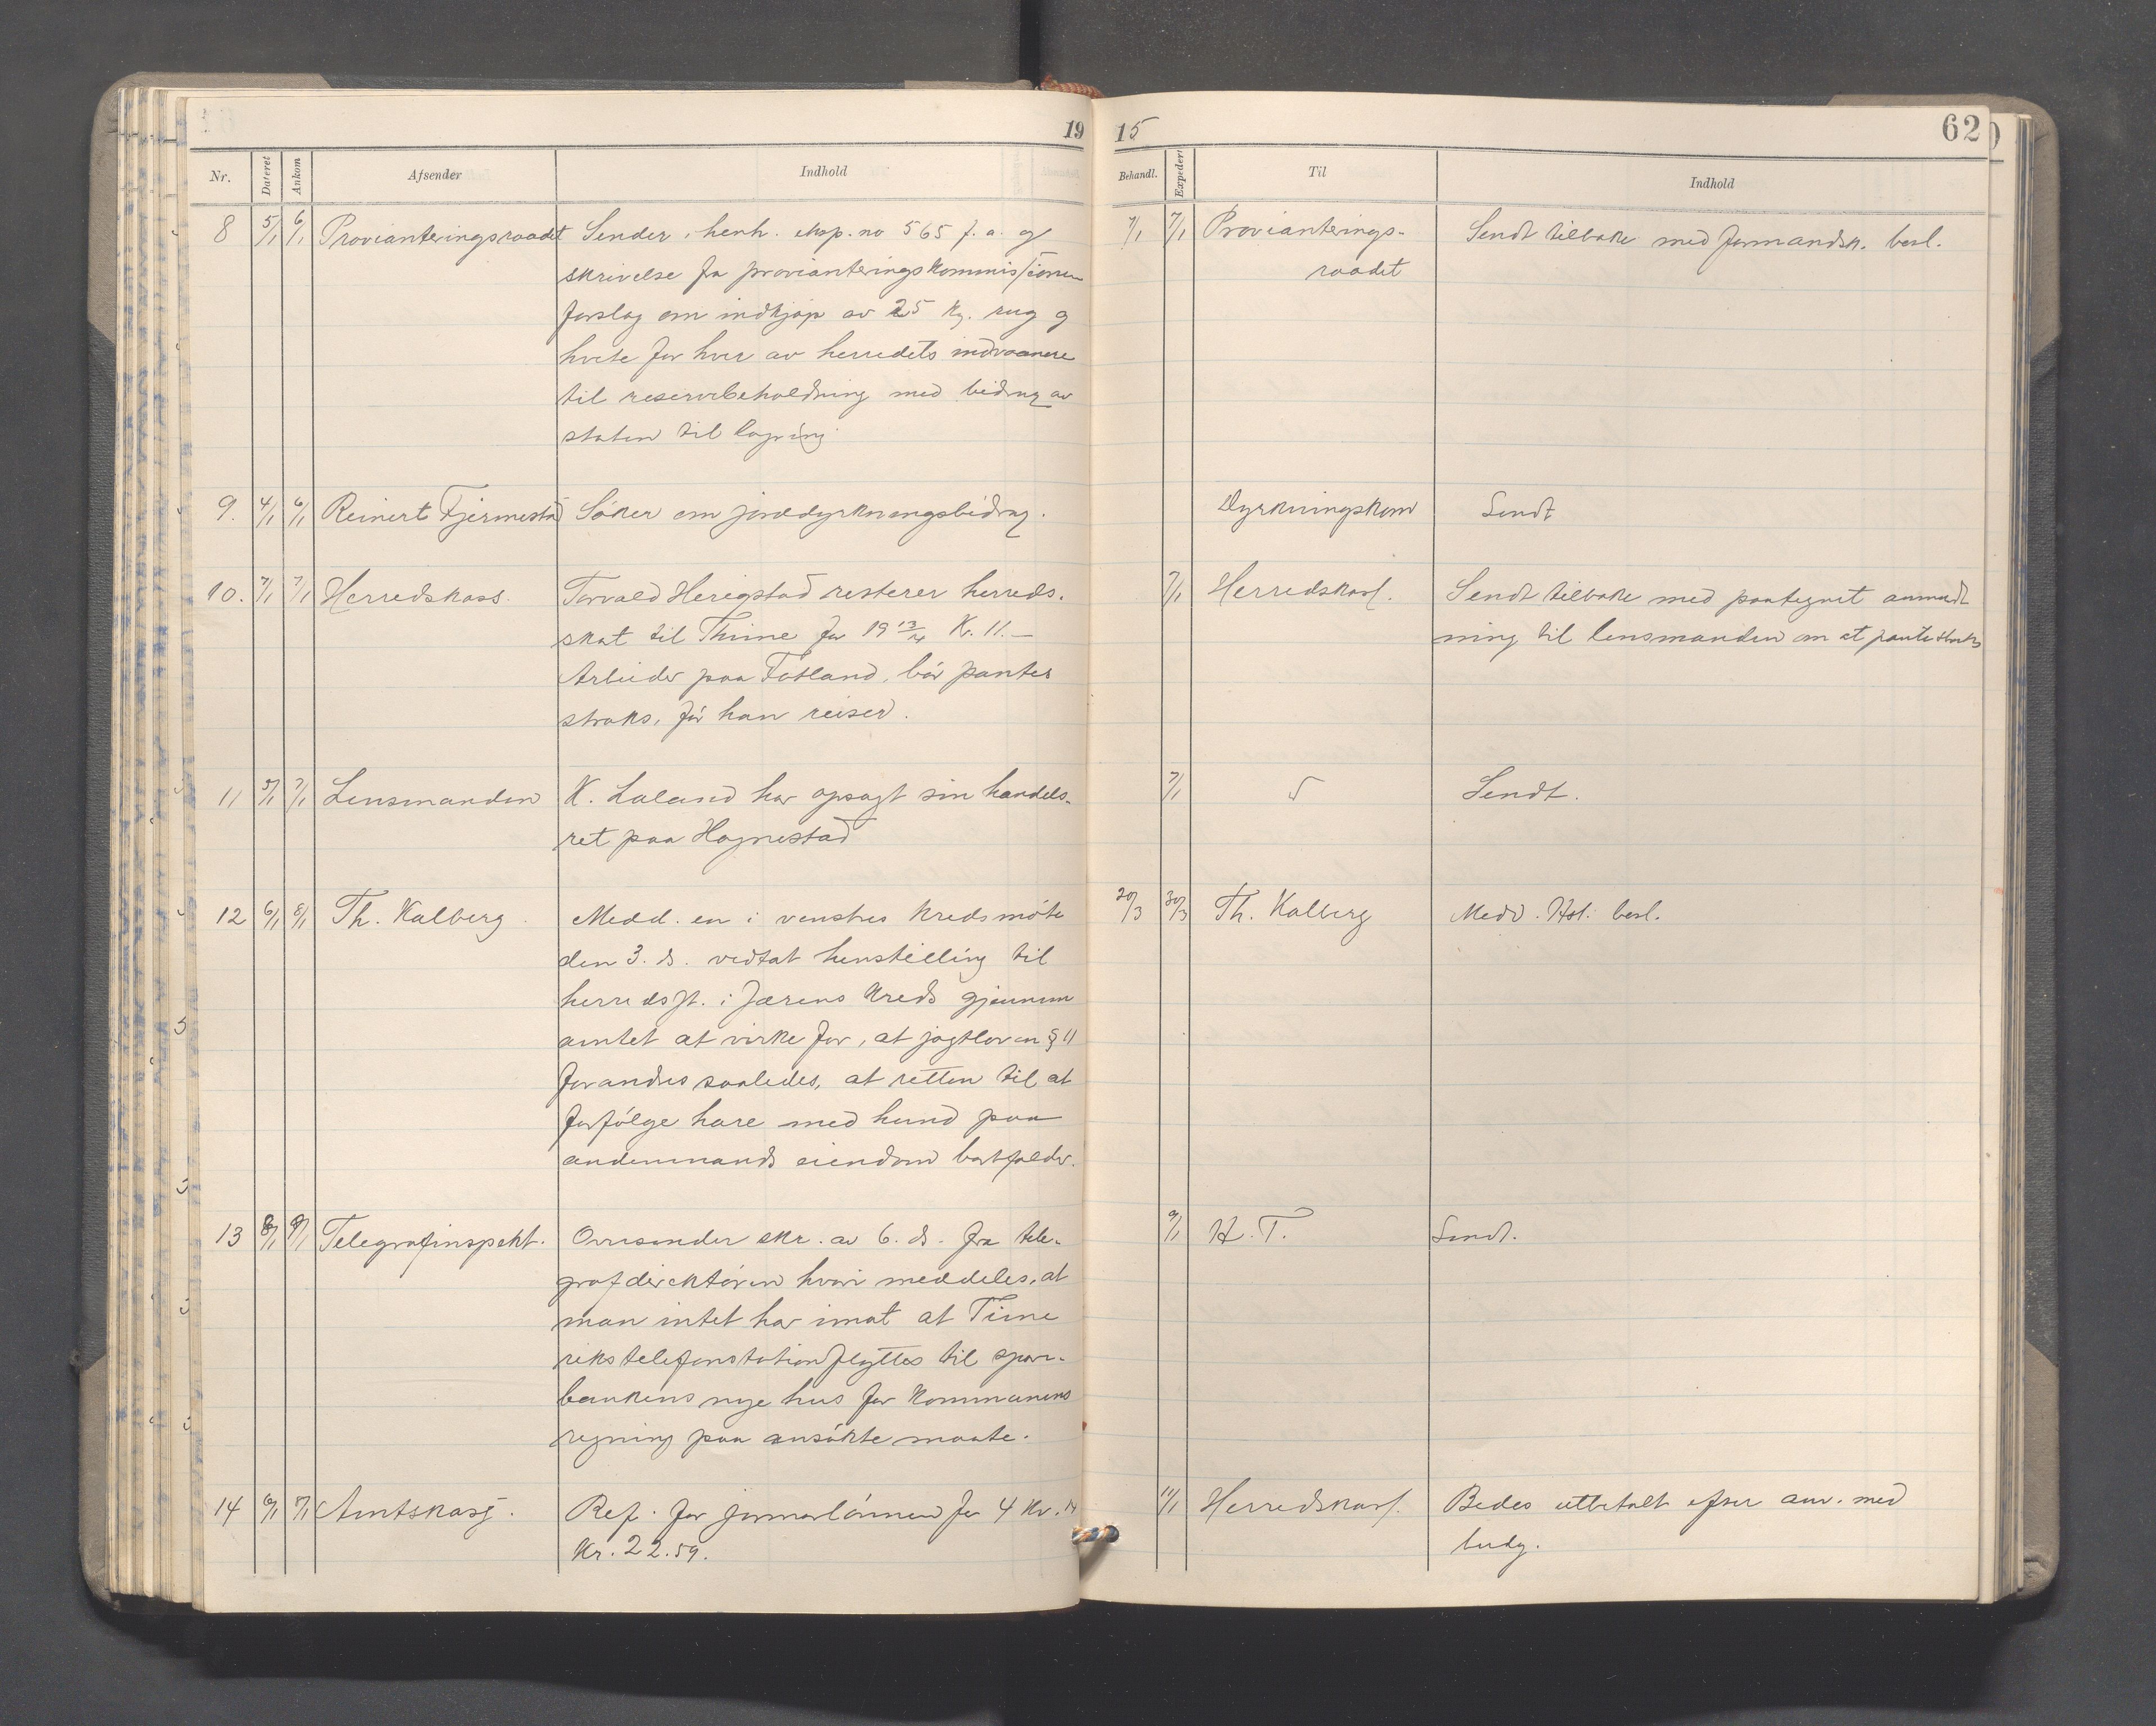 19 15 62
Nr. Dateret Ankom Afsender Indhold Behandl. Expedert Til Indhold
8 5/1 6/1 Provianteringsraadet Sender i henh. ekop. no 565 f. a. og
skrivelse fra provianteringskommissionen
forslag om indkjøp av 25 kg. rug og
hvete for hver av herredets indvaanere
til reservebeholdning med bidrag av
staten til lagring
7/1 7/1 Provianterings-
raadet
Sendt tilbake med formandsk. besl.
9. 4/1 6/1 Reinert Fjermestad Søker om jorddyrkningsbidrag.
Dyrkningskom Sendt
10. 7/1 7/1 Herredskass. Torvald Herigstad resterer herreds-
skat til Thime for 19 13/14 Kr. 11.—
Arbeider paa Fotland, bør pantes
straks, før han reiser.
7/1 Herredskass. Sendt tilbake med paategnet anmod
ning til lensmanden om at pante straks
11 5/1 7/1 Lensmanden K. Laland har opsagt sin handels-
ret paa Hognestad
7/1 Sendt.
12 6/1 8/1 Th. Kalberg. Medd. en i venstres kredsmøte
den 3. ds. vedtat henstilling til
herredsst. i Jærens kreds gjennem
amtet at virke for, at jagtloven § 11
forandres saaledes, at retten til at
forfølge hare med hund paa
andenmands eiendom bortfalder.
20/3 30/3 Th. Kalberg Medd. Hst. besl.
13 8/1 9/1 Telegrafinspekt. Oversender skr. av 6. ds. fra tele-
grafdirektøren hvori meddeles, at
man intet har imot at Time
rikstelefonstation flyttes til spare-
bankens nye hus for kommunens
regning paa ansøkte maate.
9/1 H. T. Sendt.
14 6/1 9/1 Amtskass. Ref. for jormorlønnen for 4 kv. 14
Kr. 22.59.
11/1 Herredskass. Bedes utbetalt efter anv. med
budg.